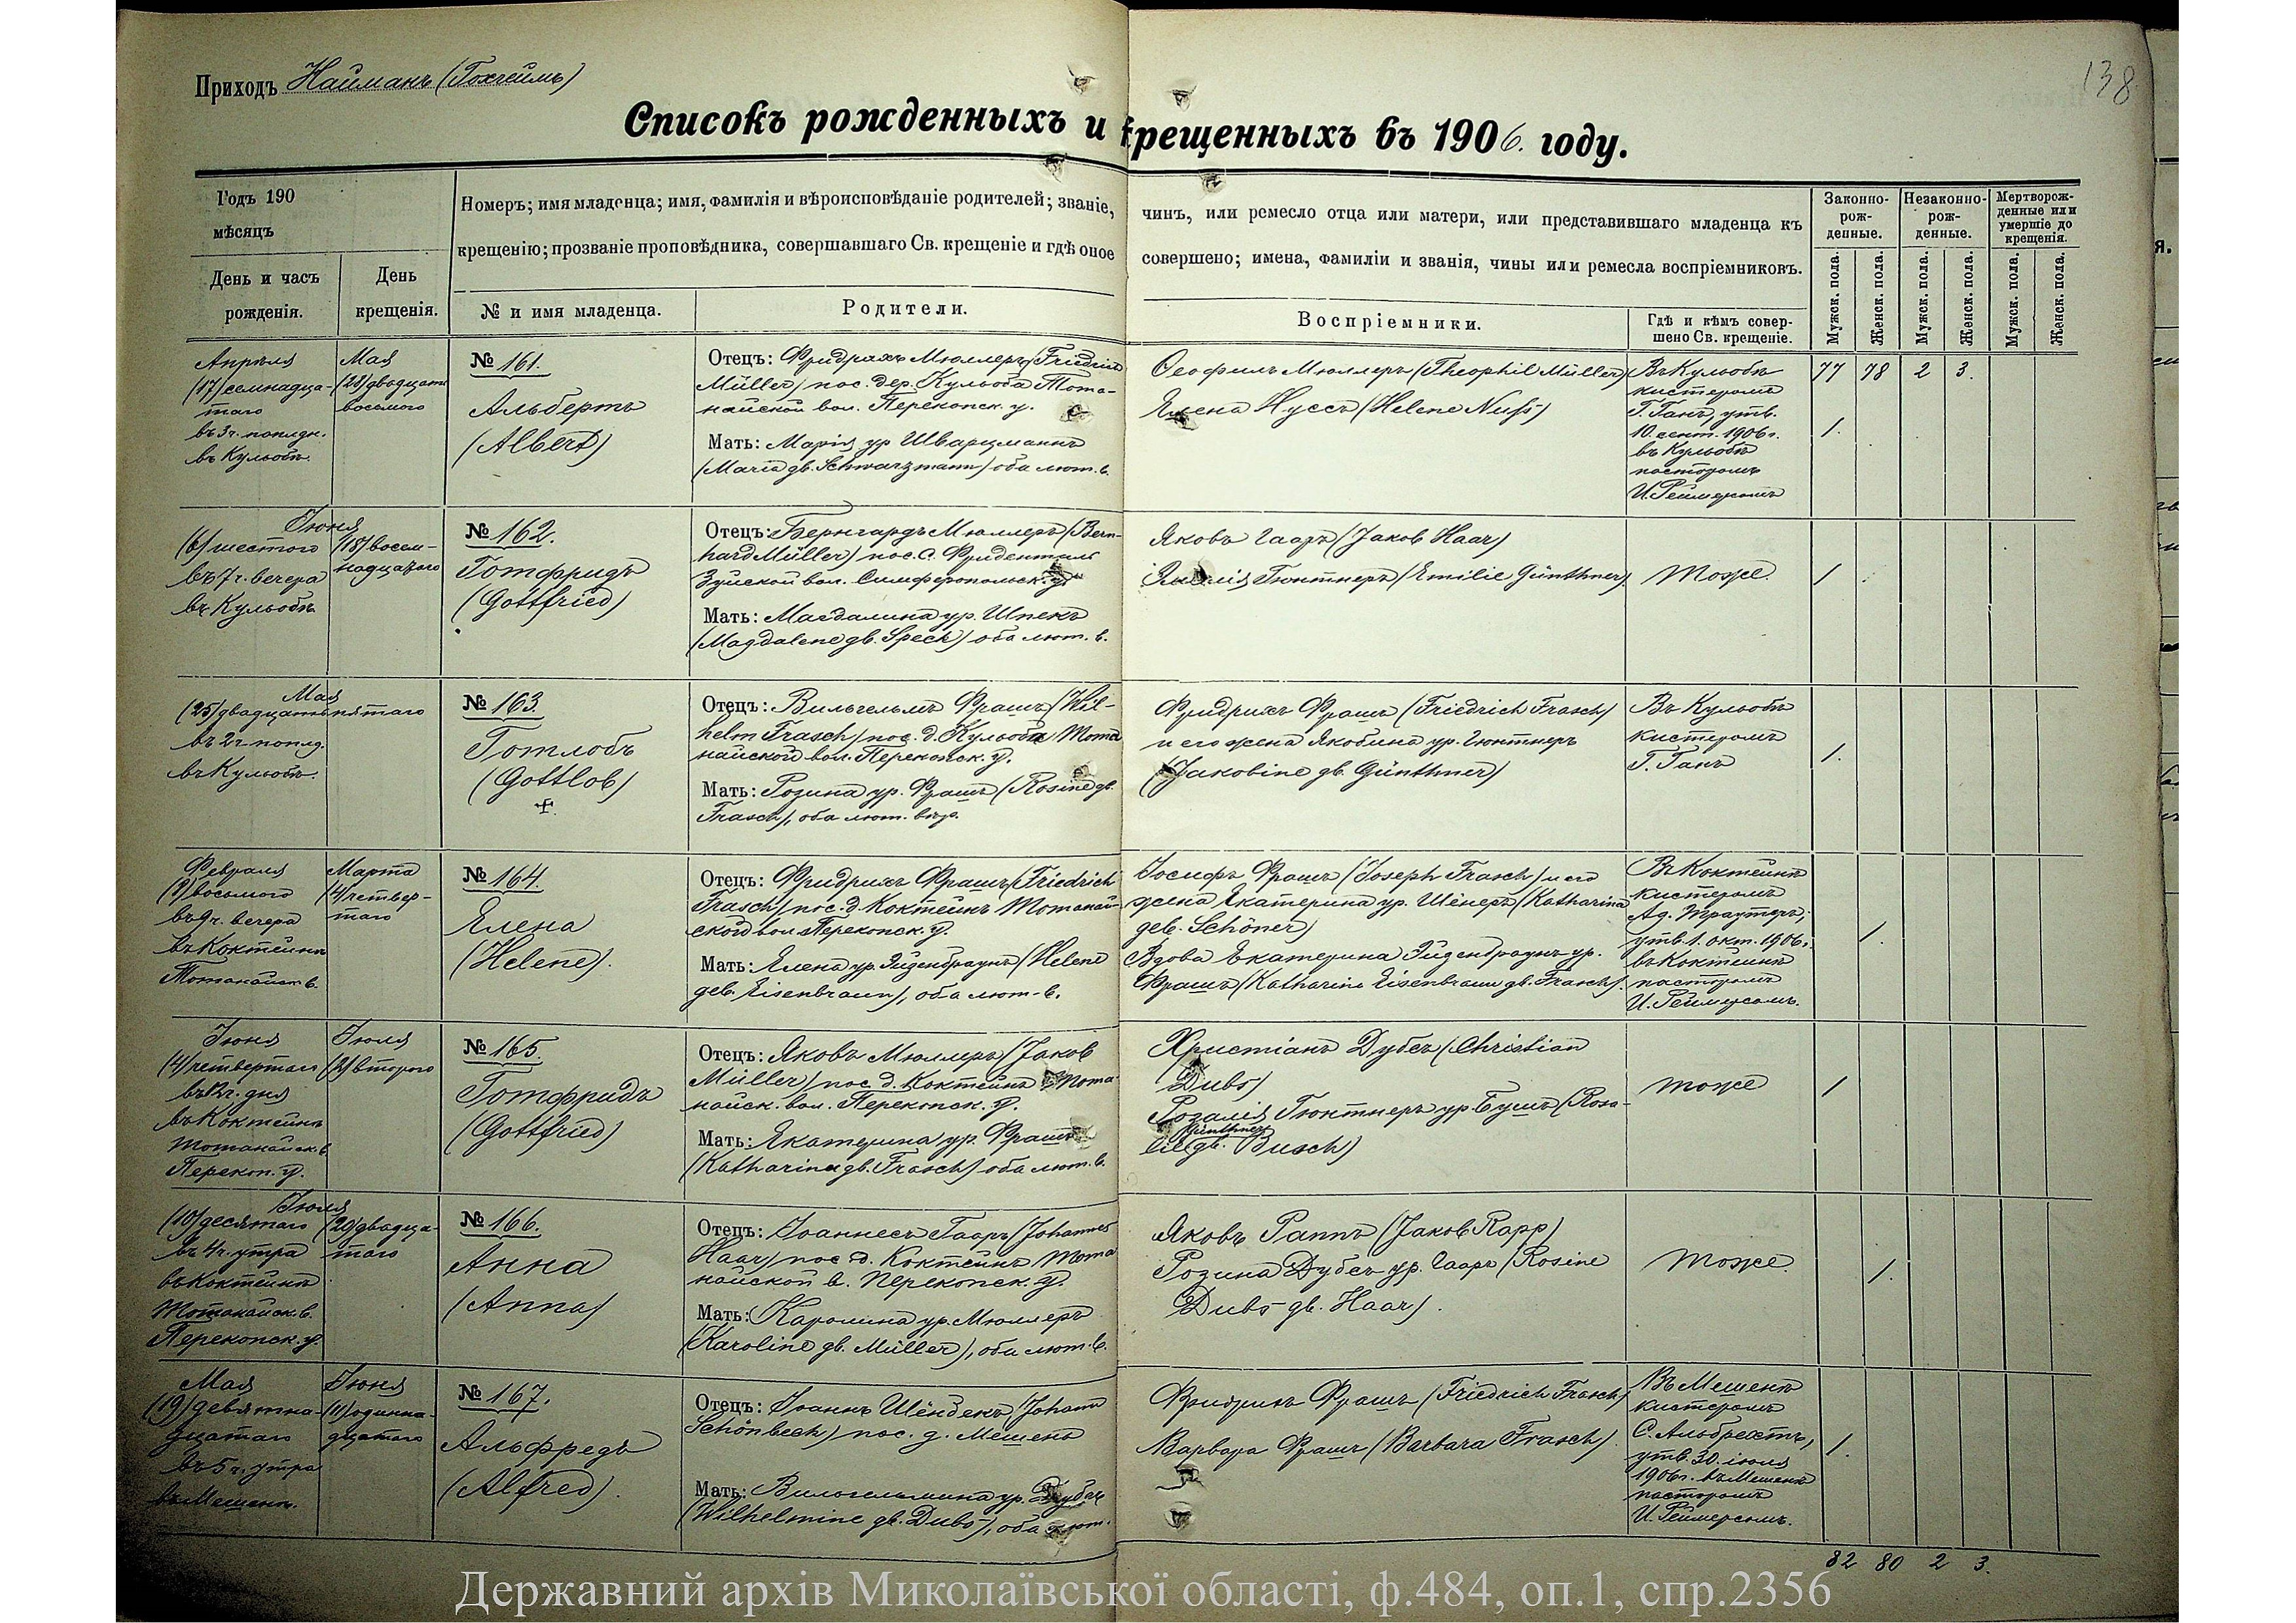 138
Приходъ Найманъ (Гохгеймъ)
Списокъ рожденныхъ и крещенныхъ въ 1906. году.
Годъ 190
мѣсяцъ
День и часъ
рожденія.
День
крещенія.
Номеръ; имя младенца; имя, фамилія и вѣроисповѣданіе родителей; званіе,
крещенію; прозваніе проповѣдника, совершавшаго Св. крещеніе и гдѣ оное
№ и имя младенца.
Родители.
чинъ, или ремесло отца или матери, или представившаго младенца къ
совершено; имена, фамиліи и званія, чины или ремесла воспріемниковъ.
Воспріемники.
Гдѣ и кѣмъ совер-
шено Св. крещеніе.
Законно-
рож-
денные.
Незаконно-
рож-
денные.
Мертворож-
денные или
умершіе до
крещенія.
Мужск. пола.
Женск. пола.
Мужск. пола.
Женск. пола.
Мужск. пола.
Женск. пола.
Апрѣля
(17) семнадца-
таго
въ 3 ч. попедн.
въ Кульобѣ
Мая
(28) двадцать
восьмого
№ 161.
Альбертъ
(Albert)
Отецъ: Фридрихъ Мюллеръ (Friedrich
Müller) пос. дер. Кульоба Тота-
найской вол. Перекопск. у.
Мать: Марія ур Шварцманнъ
(Maria gb. Schwarzmann) оба лют. в.
Феофилъ Мюллеръ (Theophil Müller)
Елена Нуссъ (Helene Nuß)
Въ Кульобѣ
кистеромъ
Г. Ганъ, утв.
10. сент. 1906 г.
въ Кульобѣ
пасторомъ
И. Реймерсомъ
77 78 2 3.
1.
Іюня
(6) шестого
въ 7 ч. вечера
въ Кульобѣ
(18) восем-
надцатаго
№ 162.
Готфридъ
(Gottfried)
Отецъ: Бернгардъ Мюллеръ (Bern-
hard Müller) пос. с. Фриденталь
Зуйской вол. Симферопольск. у.
Мать: Магдалина ур. Шпекъ
(Magdalene gb. Speck) оба лют. в.
Яковъ Гааръ (Jakob Haar)
Эмилія Гюнтнеръ (Emilie Günthner)
Тоже.
1
Мая
(25) двадцать пятаго
въ 2 ч попед.
въ Кульобѣ.
№ 163.
Готлобъ
(Gottlob)
Отецъ: Вильгельмъ Фрашъ (Wil-
helm Frasch) пос. д. Кульоба Тота
найской вол. Перекопск. у.
Мать: Розина ур. Фрашъ (Rosine gb.
Frasch), оба лют. вѣр.
Фридрихъ Фрашъ (Friedrich Frasch)
и его жена Якобина ур. Гюнтнеръ
(Jakobine gb. Günthner)
Въ Кульобѣ
кистеромъ
Г. Ганъ
1.
Февраля
(8) восьмого
въ 9 ч. вечера
въ Коктейнѣ
Тотанайск в.
Марта
(4) четвер-
таго
№ 164.
Елена
(Helene).
Отецъ: Фридрихъ Фрашъ (Friedrich
Frasch) пос. д. Коктеинъ Тотанай-
ской вол Перекопск. у.
Мать: Елена ур. Эйзенбраунъ (Helene
geb. Eisenbraun), оба лют. в.
Іосифъ Фрашъ (Joseph Frasch) и его
жена Екатерина ур. Шёнеръ (Katharina
geb. Schöner)
Вдова Екатерина Эйзенбраунъ ур.
Фрашъ (Katharine Eisenbraun gb. Frasch).
Въ Коктейнѣ
кистеромъ
Ад. Траутеръ;
утв. 1. окт. 1906 г.
въ Коктейнѣ
пасторомъ
И. Реймерсомъ.
1.
Іюня
(4) четвертаго
въ 12 ч. дня
въ Коктейнѣ
Тотанайск. в.
Перекоп. у.
Іюля
(2) второго
№ 165.
Готфридъ
(Gottfried)
Отецъ: Яковъ Мюллеръ (Jakob
Müller) пос д. Коктеинъ Тота
найск. вол. Перекопск. у.
Мать: Екатерина ур. Фрашъ
(Katharina gb. Frasch) оба лют. в.
Христіанъ Дубсъ (Christian
Dubs)
Розалія Гюнтнеръ ур. Бушъ (Rosa-
Günthner
lie gb. Busch)
Тоже
1
Іюля
(10) десятаго
въ 4 ч. утра
въ Коктейнѣ
Тотанайск. в.
Перекопск. у.
(20) двадца-
таго
№ 166.
Анна
(Anna)
Отецъ: Іоаннесъ Гааръ (Johannes
Haar) пос д. Коктеинъ Тота
найской в. Перекопск. у.
Мать: Каролина ур. Мюллеръ
(Karoline gb. Müller), оба лют. в.
Яковъ Раппъ (Jakob Rapp)
Розина Дубсъ ур. Гааръ (Rosine
Dubs gb. Haar).
Тоже.
1.
Мая
(19) девятна-
дцатаго
въ 5 ч. утра
въ Мешенѣ.
Іюня
(11) одинна-
дцатаго
№ 167.
Альфредъ
(Alfred).
Отецъ: Іоаннъ Шёнбекъ (Johann
Schönbeck) пос. д. Мешень
Мать: Вильгельмина ур. Дубсъ
(Wilhelmine gb. Dubs), оба лют.
Фридрихъ Фрашъ (Friedrich Frasch)
Варвара Фрашъ (Barbara Frasch).
Въ Мешенѣ
кистеромъ
С. Альбрехтъ,
утв. 30. іюля
1906 г. въ Мешенѣ
пасторомъ
И. Реймерсомъ.
1.
82 80 2 3.
Державний архів Миколаївської області, ф.484, оп.1, спр.2356